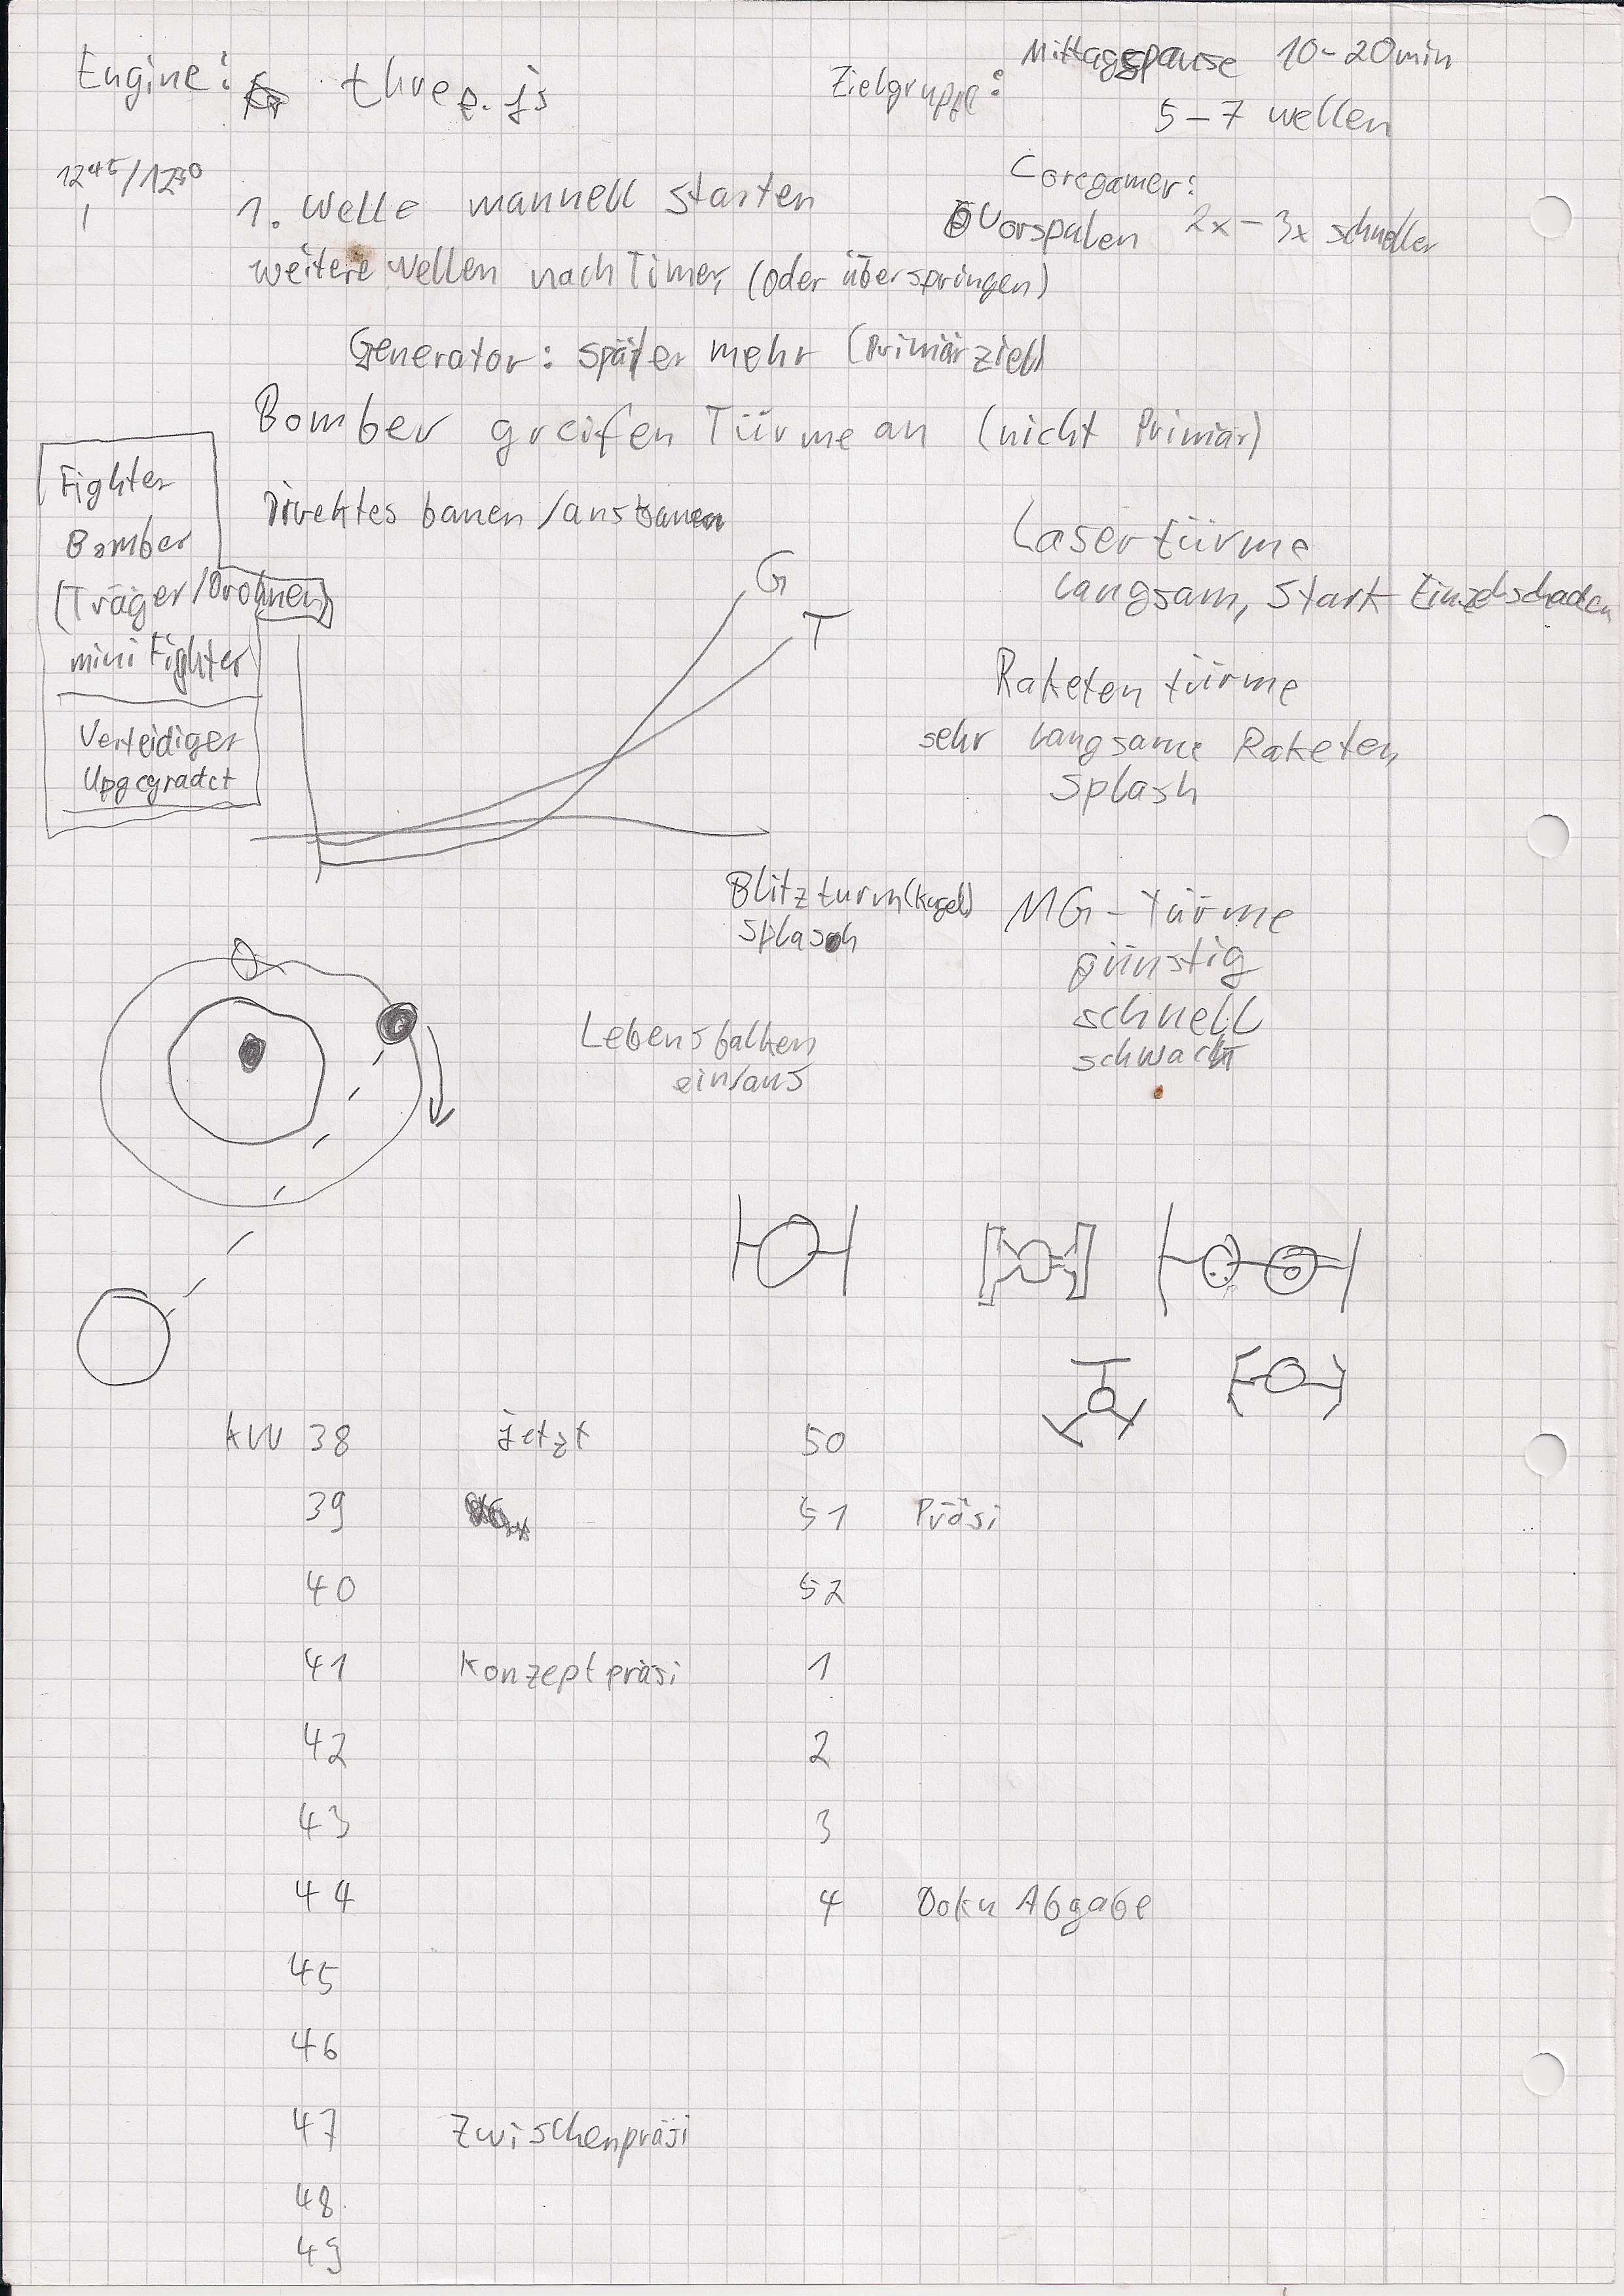 Engine: three.js
Zielgruppe: Mittagspause 10-20min
5-7 wellen
Coregamer:
Vorspulen 2x-3x schneller
12⁴⁵/12³⁰
1. Welle manuell starten
weitere Wellen nach Timer (oder überspringen)
Generator: später mehr (Primärziel)
Bomber greifen Türme an (nicht Primär)
Direktes bauen/ausbauen
Fighter
Bomber
(Träger/Drohnen)
mini Fighter
Verteidiger
Upgegradet
G
T
Lasertürme
langsam, Stark Einzelschaden
Raketen türme
sehr langsame Raketen
Splash
Blitzturm (Kugel)
Splash
MG-türme
günstig
schnell
schwach
Lebensbalken
ein/aus
KW 38 jetzt
39
40
41 Konzeptpräsi
42
43
44
45
46
47 Zwischenpräsi
48
49
50
51 Präsi
52
1
2
3
4 Doku Abgabe